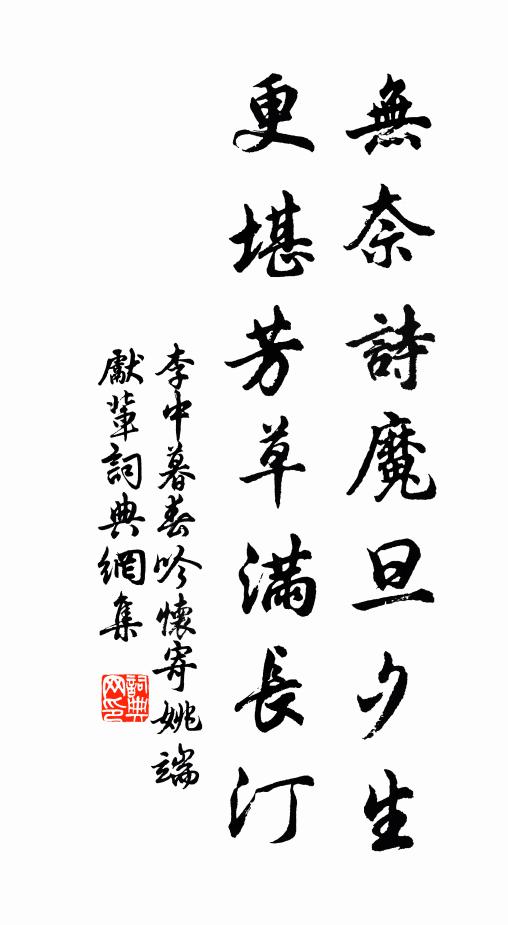 無奈詩魔旦夕生
更堪芳草滿長汀
李中暮春吟懷寄姚端
獻輩詞典網集
詞典網印